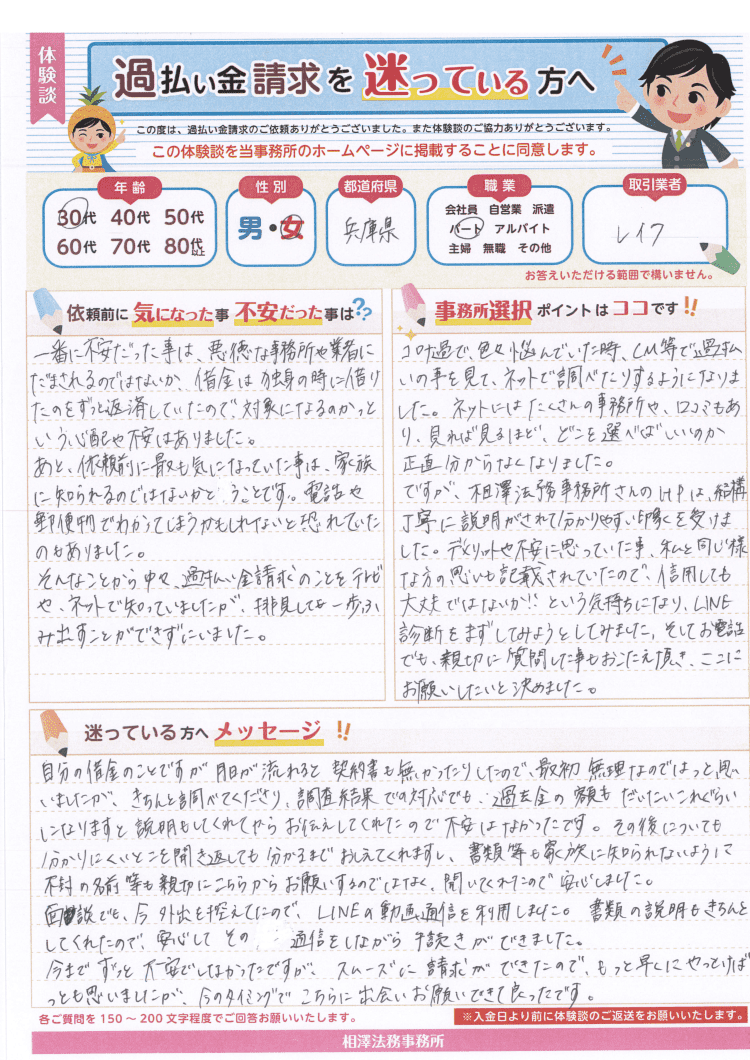 体験談
過払い金請求を迷っている方へ
この度は、過払い金請求のご依頼ありがとうございました。また体験談のご協力ありがとうございます。
この体験談を当事務所のホームページに掲載することに同意します。
年齢
30代 40代 50代
60代 70代 80代以上
性別
男・女
都道府県
兵庫県
職業
会社員 自営業 派遣
パート アルバイト
主婦 無職 その他
取引業者
レイク
お答えいただける範囲で構いません。
依頼前に気になった事 不安だった事は??
一番に不安だった事は、悪徳な事務所や業者に
だまされるのではないか、借金は独身の時に借り
たのをずっと返済していたので、対象になるのかっと
いう心配や不安はありました。
あと、依頼前に最も気になっていた事は、家族
に知られるのではないかと うことです。電話や
郵便物でわかってしまうかもしれないと恐れていた
のもありました。
そんなことから中々、過払い金請求のことをテレビ
や、ネットで知っていましたが、拝見しても一歩ふ
み出すことができずにいました。
事務所選択ポイントはココです!!
コロナ過で、色々悩んでいた時、CM等で過払
いの事を見て、ネットで調べたりするようになりま
した。ネットにはたくさんの事務所や、口コミもあ
り、見れば見るほど、どこを選べばしいのか
正直分からなくなりました。
ですが、相澤法務事務所さんのHPは、結構
丁寧に説明がされて分かりやすい印象を受けま
した。デメリットや不安に思っていた事、私と同じ様
な方の思いも記載されていたので、信用しても
大丈夫ではないか!!という気持ちになり、LINE
診断をまずしてみようとしてみました。そしてお電話
でも、親切に質問した事もおこたえ頂き、ここに
お願いしたいと決めました。
迷っている方へメッセージ!!
自分の借金のことですが月日が流れると契約書も無かったりしたので、最初無理なのではっと思
いましたが、きちんと調べてくださり、調査結果での対応でも、過去金の額もだいたいこれぐらい
になりますと説明もしてくれてからお伝えしてくれたので不安はなかったです。その後についても
分かりにくいとこを聞き返しても分かるまでおしえてくれますし、書類等も家族に知られないように
封の名前等も親切にこちらからお願いするのではなく、聞いてくれたので安心しました。
面談でも、今外出を控えてたので、LINEの動画通信を利用しました。書類の説明もきちんと
してくれたので、安心してその 通信をしながら手続きができました。
今まで ずっと不安でしなかったですが、スムーズに請求ができたので、もっと早くにやっとけば
っとも思いましたが、今のタイミングでこちらに出会いお願いできて良かったです。
各ご質問を150～200文字程度でご回答お願いいたします。
※入金日より前に体験談のご返送をお願いいたします。
相澤法務事務所